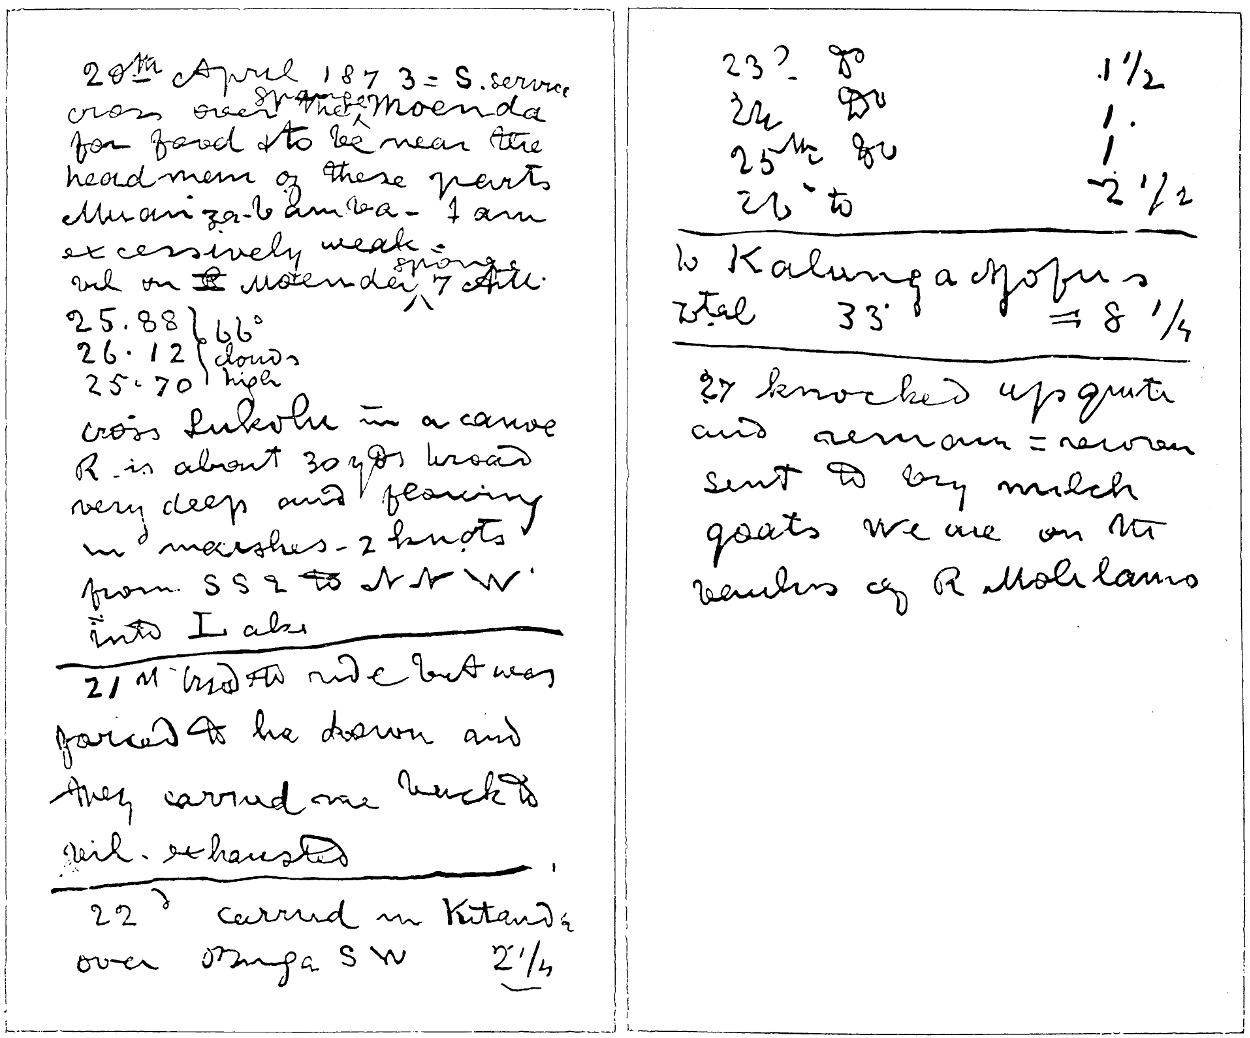 20th April 1873 = S. service
cross over the sponge Moenda
for food & to be near the
headmen of these parts
Muanzabamba - I am
excessively weak =
vil on Moenda sponge 7 AM.
25.88 } 66°
26.12 } clouds
25.70 } high
cross Lukolu in a canoe
R. is about 30 yds broad
very deep and flowing
in marshes - 2 knots
from SSE to NNW
into Lake
21st tried to ride but was
forced to lie down and
they carried me back to
vil. exhausted
22d carried in Kitanda
over Buga SW 2 1/4
23? do 1 1/2
24 Do 1.
25th do 1
26 to 2 1/2
to Kalunganjofus
total 33 = 8 1/4
27 knocked up quite
and remain = recover
sent to buy milch
goats We are on the
banks of R Molilamo